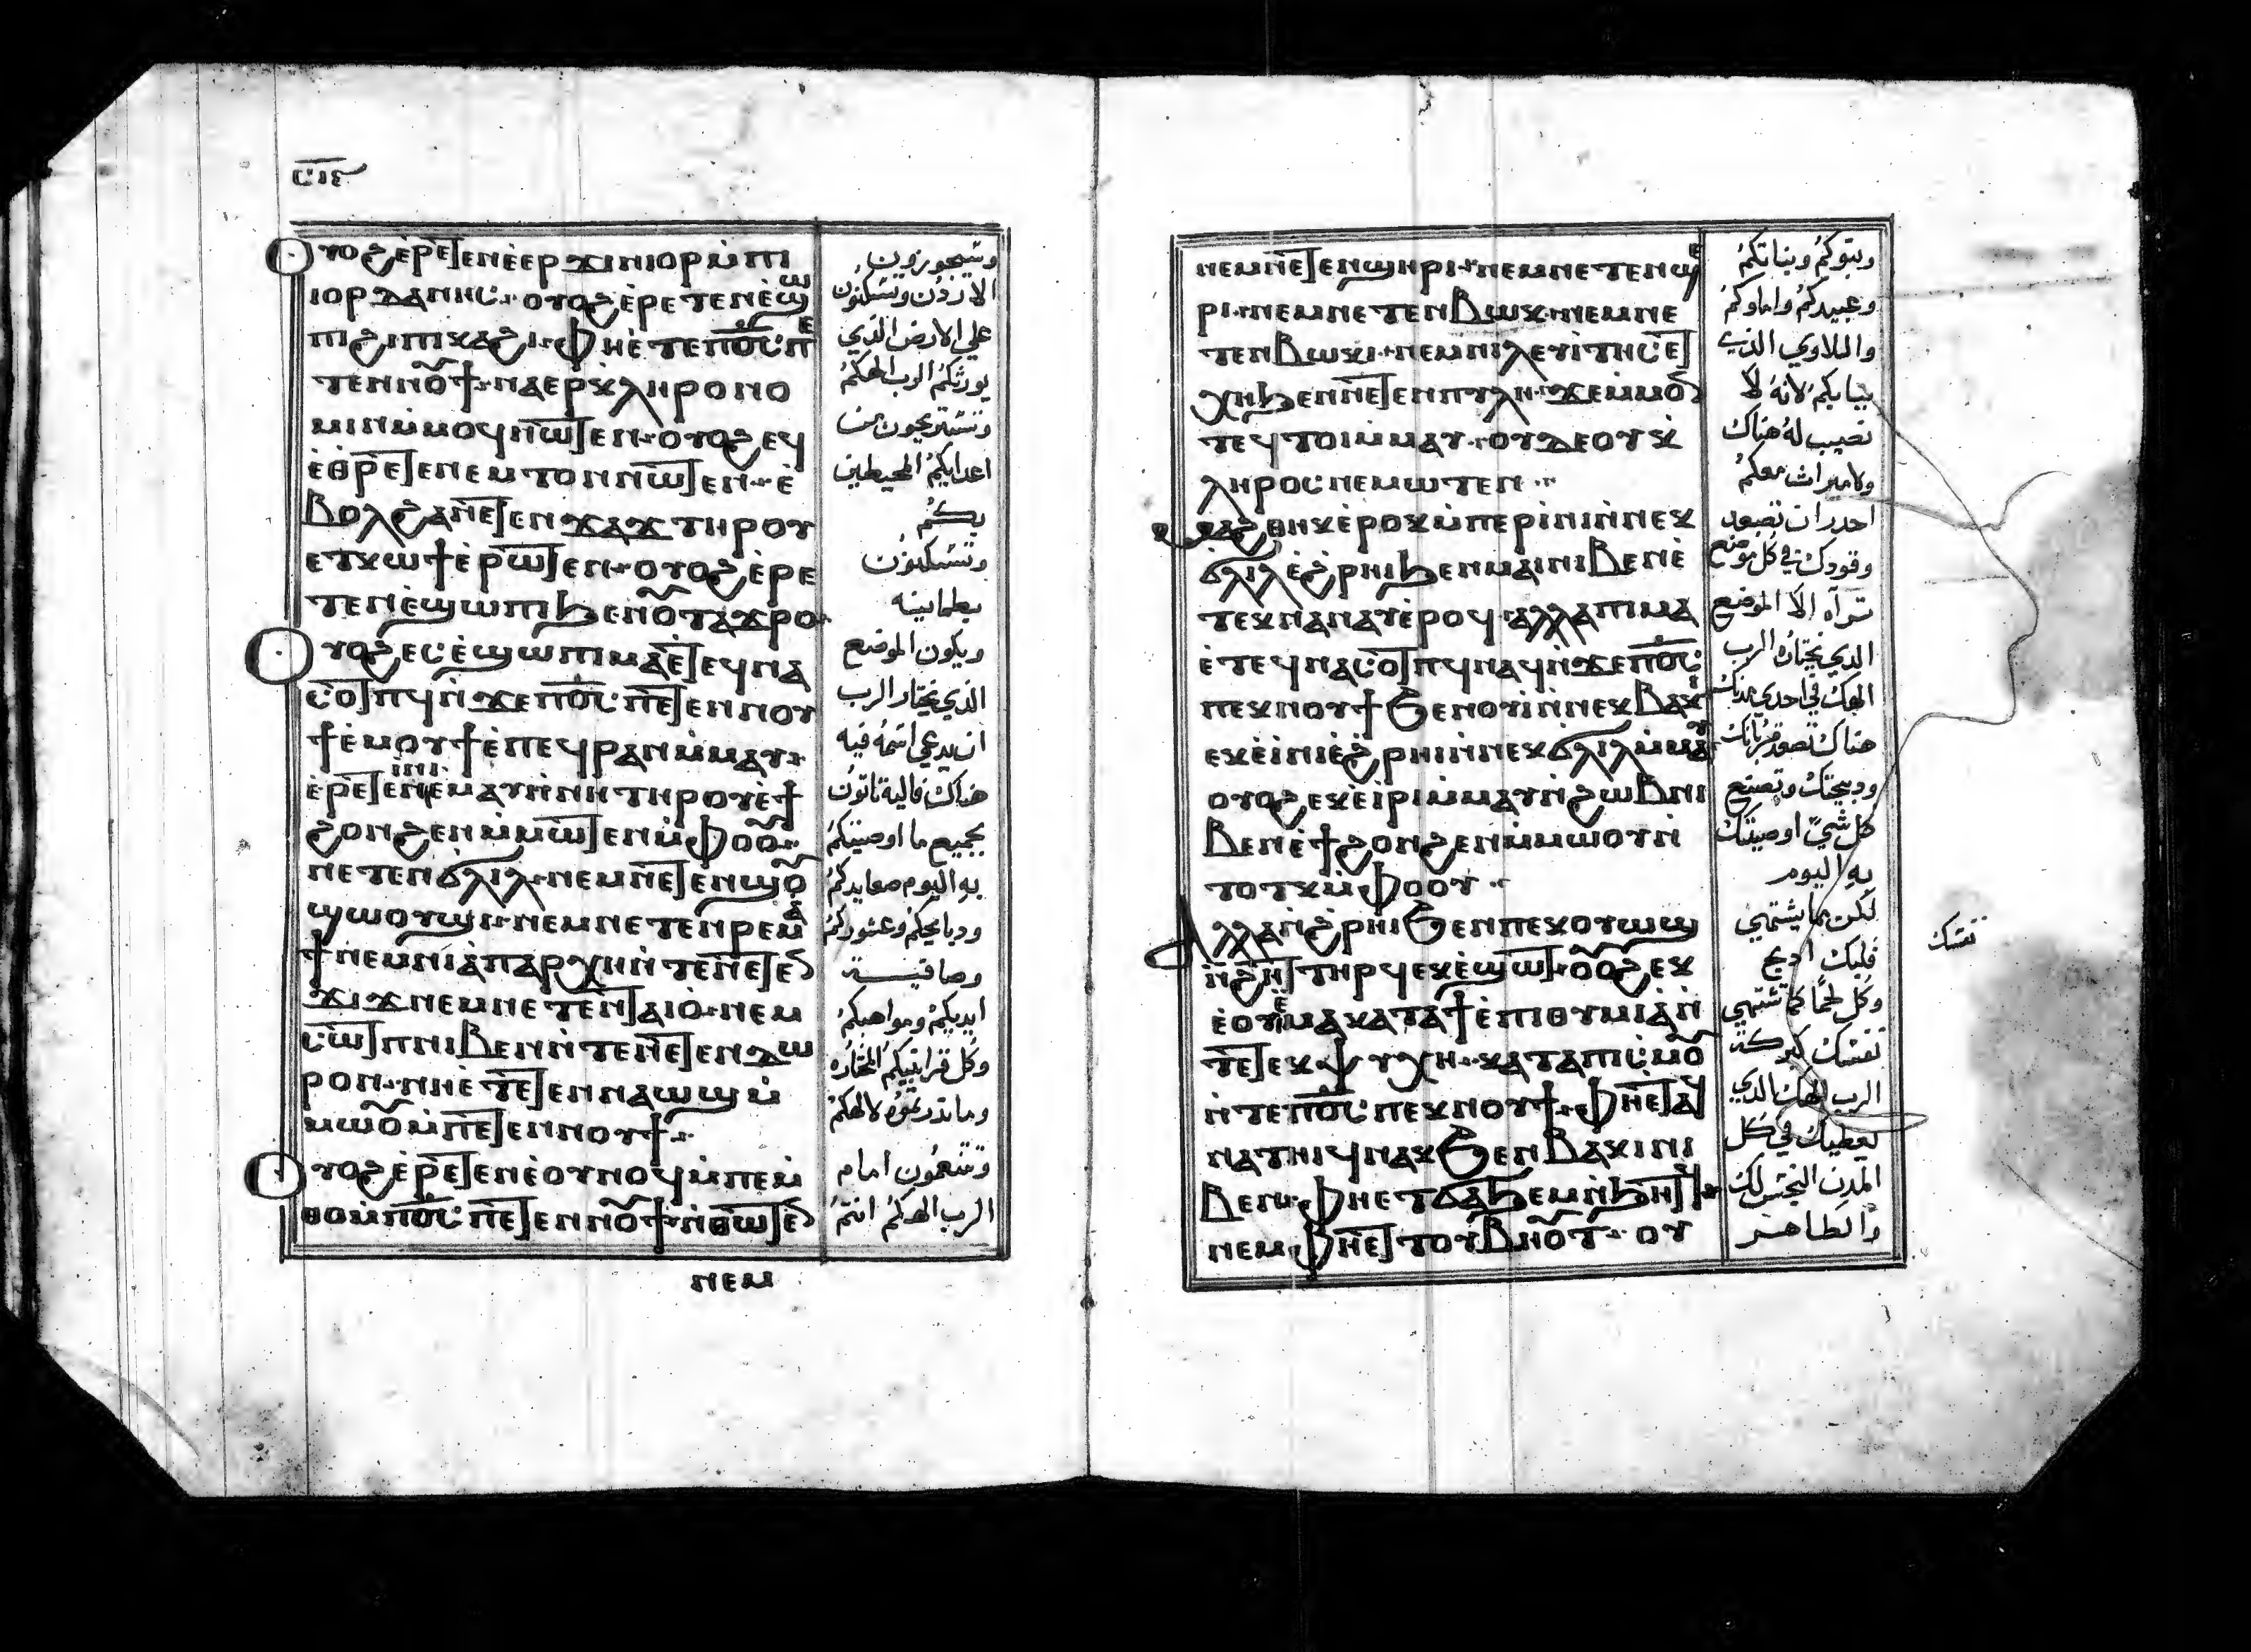 ⲟⲩⲟϩ ⲉ̀ⲣⲉⲧⲉⲛⲉ̀ⲉⲣϫⲓⲛⲓⲟⲣ ⲙ̀ⲡⲓ
ⲓⲟⲣⲇⲁⲛⲏⲥ ⲟⲩⲟϩ ⲉ̀ⲣⲉⲧⲉⲛⲉ̀ϣⲱ
ⲡⲓ ϩⲓ ⲡⲓⲕⲁϩⲓ ⲫⲏⲉ̀ⲧⲉ ⲡⲟ̅ⲥ̅ ⲡⲉ
ⲧⲉⲛⲛⲟⲩϯ ⲛⲁⲉⲣⲕⲗⲏⲣⲟⲛⲟ
ⲙⲓⲛ ⲙ̀ⲙⲟϥ ⲛⲱⲧⲉⲛ ⲟⲩⲟϩ ⲉϥ
ⲉ̀ⲑⲣⲉⲧⲉⲛⲉⲙⲧⲟⲛ ⲛⲱⲧⲉⲛ ⲉ̀
ⲃⲟⲗϩⲁ ⲛⲉⲧⲉⲛϫⲁϫⲓ ⲧⲏⲣⲟⲩ
ⲉⲧⲕⲱϯ ⲉ̀ⲣⲱⲧⲉⲛ ⲟⲩⲟϩ ⲉ̀ⲣⲉ
ⲧⲉⲛⲉ̀ϣⲱⲡⲓ ϧⲉⲛ ⲟⲩⲧⲁϫⲣⲟ
ⲟⲩⲟϩ ⲉⲥⲉ̀ϣⲱⲡⲓ ⲙⲁ ⲉ̀ⲧⲉϥⲛⲁ
ⲥⲟⲧⲡϥ ⲛ̀ϫⲉ ⲡⲟ̅ⲥ̅ ⲡⲉⲧⲉⲛⲛⲟⲩ
ϯ ⲉ̀ⲙⲟⲩϯ ⲉ̀ⲡⲉϥⲣⲁⲛ ⲙ̀ⲙⲁⲩ
ⲉ̀ⲣⲉⲧⲉⲛⲉ̀ⲓⲛⲓ ⲉ̀ⲙⲁⲩ ⲛ̀ⲛⲏ ⲧⲏⲣⲟⲩ ⲉ̀ϯ
ϩⲟⲛϩⲉⲛ ⲙ̀ⲙⲱⲧⲉⲛ ⲙ̀ⲫⲟⲟⲩ
ⲛⲉⲧⲉⲛϭⲗⲓⲗ ⲛⲉⲙ ⲛⲉⲧⲉⲛϣⲟⲩ
ϣⲱⲟⲩϣⲓ ⲛⲉⲙ ⲛⲉⲧⲉⲛⲣⲉⲙⲁ
ϯ ⲛⲉⲙ ⲛⲓⲁ̀ⲡⲁⲣⲭⲏ ⲛ̀ⲧⲉ ⲛⲉⲧⲉⲛ
ϫⲓϫ ⲛⲉⲙ ⲛⲉⲧⲉⲛⲧⲁⲓⲟ ⲛⲉⲙ
ⲥⲱⲧⲡ ⲛⲓⲃⲉⲛ ⲛ̀ⲧⲉ ⲛⲉⲧⲉⲛⲇⲱ
ⲣⲟⲛ ⲛⲏⲉ̀ⲧⲉⲧⲉⲛⲛⲁⲱϣ ⲙ̀
ⲙⲱⲟⲩ ⲙ̀ⲡⲉⲧⲉⲛⲛⲟⲩϯ
ⲟⲩⲟϩ ⲉ̀ⲣⲉⲧⲉⲛⲉ̀ⲟⲩⲛⲟϥ ⲙ̀ⲡⲉⲙ̀
ⲑⲟ ⲙ̀ⲡⲟ̅ⲥ̅ ⲡⲉⲧⲉⲛⲛⲟⲩϯ ⲛ̀ⲑⲱⲧⲉⲛ
ⲛⲉⲙ
وتجوزون
الاردن وتسكنون
علي الارض الذي
يورثكم الرب الهكم
وتستريحون من
اعدايكم المحيطين
بكم
وتسكنون
بطمانينه
ويكون الموضع
الذي يختار الرب
ان يدعي اسمه فيه
هناك فاليه تاتون
بجميع ما اوصيتكم
به اليوم صعايدكم
ودبايحكم وعشوركم
وصافية
ايديكم ومواهبكم
وكل قرابينكم المختاره
وما تدرتموه لالهكم
وتنعمون امام
الرب الهكم انتم
ⲛⲉⲙ ⲛⲉⲧⲉⲛϣⲏⲣⲓ ⲛⲉⲙ ⲛⲉⲧⲉⲛϣⲉ
ⲣⲓ ⲛⲉⲙ ⲛⲉⲧⲉⲛⲃⲱⲕ ⲛⲉⲙ ⲛⲉ
ⲧⲉⲛⲃⲱⲕⲓ ⲛⲉⲙ ⲛⲓⲗⲉⲩⲓⲧⲏⲥ ⲉⲧ
ⲭⲏ ϧⲉⲛ ⲛⲉⲧⲉⲛⲡⲩⲗⲏ ϫⲉ ⲙ̀ⲙⲟⲛ
ⲧⲉϥ ⲧⲟⲓ ⲙ̀ⲙⲁⲩ ⲟⲩⲇⲉ ⲟⲩⲕ̀
ⲗⲏⲣⲟⲥ ⲛⲉⲙⲱⲧⲉⲛ
ⲙⲁϩⲑⲏⲕ ⲉ̀ⲣⲟⲕ ⲙ̀ⲡⲉⲣⲓ̀ⲛⲓ ⲛ̀ⲛⲉⲕ
ϭⲗⲓⲗ ⲉ̀ϩ̀ⲣⲏⲓ ϧⲉⲛ ⲙⲁⲓ ⲛⲓⲃⲉⲛ ⲉ̀
ⲧⲉⲕⲛⲁⲛⲁⲩ ⲉ̀ⲣⲟϥ ⲁⲗⲗⲁ ⲡⲓⲙⲁ
ⲉ̀ⲧⲉϥⲛⲁⲥⲟⲧⲡϥ ⲛⲁϥ ⲛ̀ϫⲉ ⲡⲟ̅ⲥ̅
ⲡⲉⲕⲛⲟⲩϯ ϧⲉⲛ ⲟⲩⲓ̀ ⲛ̀ⲛⲉⲕⲃⲁⲕⲓ
ⲉⲕⲉ̀ⲓⲛⲓ ⲉ̀ϩ̀ⲣⲏⲓ ⲛ̀ⲛⲉⲕϭⲗⲓⲗ ⲙ̀ⲙⲁⲩ
ⲟⲩⲟϩ ⲉⲕⲉ̀ⲓⲣⲓ ⲙ̀ⲙⲁⲩ ⲛ̀ϩⲱⲃ ⲛⲓ
ⲃⲉⲛ ⲉ̀ϯϩⲟⲛϩⲉⲛ ⲙ̀ⲙⲱⲟⲩ ⲛ̀
ⲧⲟⲧⲕ ⲙ̀ⲫⲟⲟⲩ
ⲁⲗⲗⲁ ⲛ̀ϩ̀ⲣⲏⲓ ϧⲉⲛ ⲡⲉⲕⲟⲩⲱϣ
ⲛ̀ϩⲏⲧ ⲧⲏⲣϥ ⲉⲕⲉ̀ϣⲱⲧ ⲟⲩⲟϩ ⲉⲕ
ⲉ̀ⲟⲩⲉⲙ ⲁϥ ⲕⲁⲧⲁ ϯⲉ̀ⲡⲓⲑⲩⲙⲓⲁ ⲛ̀
ⲧⲉ ⲧⲉⲕⲯⲩⲭⲏ ⲕⲁⲧⲁ ⲡⲓⲥⲙⲟⲩ
ⲛ̀ⲧⲉ ⲡⲟ̅ⲥ̅ ⲡⲉⲕⲛⲟⲩϯ ⲫⲏⲉⲧⲁϥ
ⲛⲁⲧⲏⲓϥ ⲛⲁⲕ ϧⲉⲛ ⲃⲁⲕⲓ ⲛⲓ
ⲃⲉⲛ ⲫⲏⲉⲧϭⲁϧⲉⲙ ⲛ̀ϧⲏⲧⲕ
ⲛⲉⲙ ⲫⲏⲉⲧⲧⲟⲩⲃⲏⲟⲩⲧ ⲟⲩ
وبنوكم وبناتكم
وعبيدكم واماوكم
واللاوي الذي
ببابكم لانه لا
نصيب له هناك
ولا ميراث معكم
احدر ان تصعد
وقودك في كل موضع
تراه الا الموضع
الذي يختاره الرب
الهك في احدي مدنك
هناك تصعد قربانك
ودبيحتك وتصنع
كل شي اوصيتك
به اليوم
لكن بما يشتهي
قلبك ادبح
وكل لحما كما تشتهي
نفسك كبركة
الرب الهك الذي
يعطيك في كل
المدن النجس لك
والطاهر
نفسك